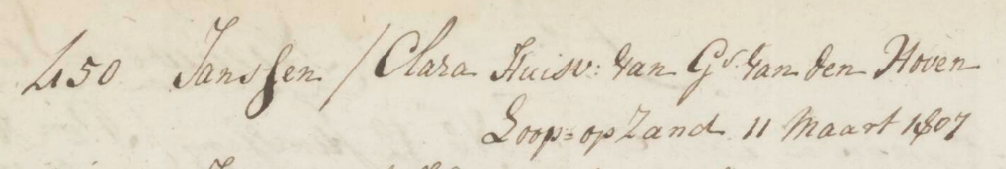 450 Janssen / Clara Huisv: van Gs. van den Hoven
Loop=op Zand 11 Maart 1807